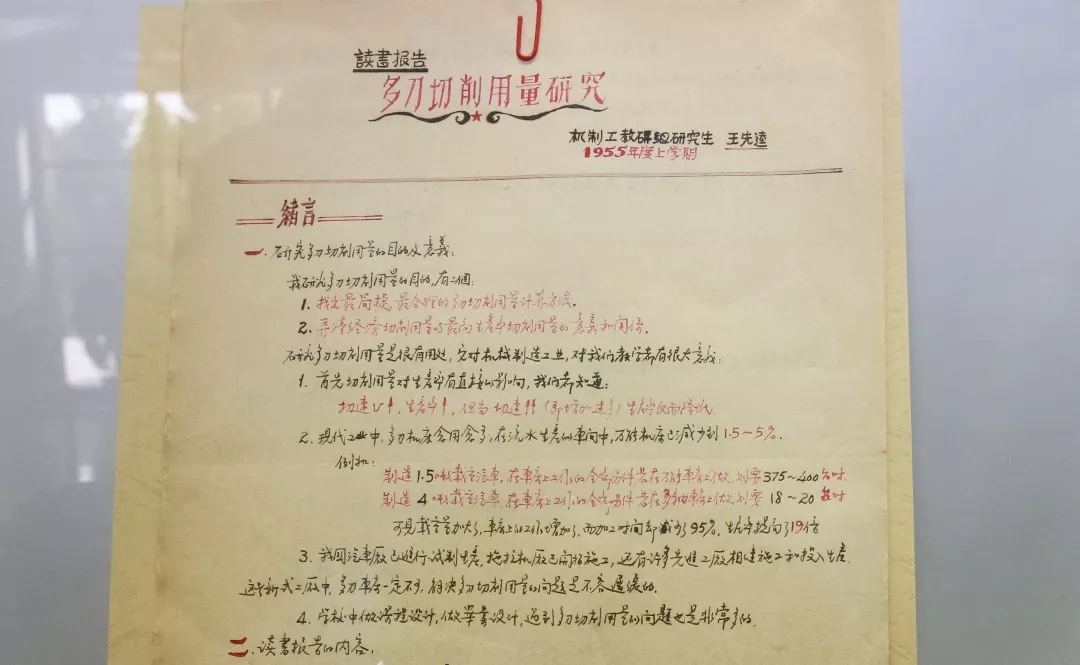 讀書报告
多刀切削用量研究
机制工教研組研究生 王先逵
1955年度上学期
緒言
一. 研究多刀切削用量的目的及意義:
我研究多刀切削用量的目的, 有二個:
1. 找出最簡捷, 最合理的多刀切削用量计算方法.
2. 弄清經濟切削用量与最高生產率切削用量的意義和関係.
研究多刀切削用量是很有用处, 它对机械制造工业, 对我们教学都有很大意義:
1. 首先切削用量对生產率有直接的影响, 我们都知道:
切速v↑, 生產率↑, 但当切速↑↑ (即增加过多) 生產率反而降低.
2. 現代工业中, 多刀机床会用会多, 在流水生產的車间中, 万能机床已減少到1.5~5%.
例如:
制造1.5噸載重汽車, 在車床上工作的全部另件若在万能車床上做, 则要375~400台时
制造4噸載重汽車, 在車床上工作的全部另件若在多軸車床上做, 则要18~20台时
可見載重量加大了, 車床上的工作增加了, 而加工时间却減少了95%, 生產率提高了19倍
3. 我国汽車厰已進行试制生產, 拖拉机厰已開始施工, 还有许多先進工厰相继施工和投入生產.
这些新式工厰中, 多刀車床一定不少, 解决多刀切削用量的问题是不容遲緩的.
4. 学校中做课程设计, 做畢業设计, 遇到多刀切削用量的问题也是非常多的.
二. 读書报告的内容.